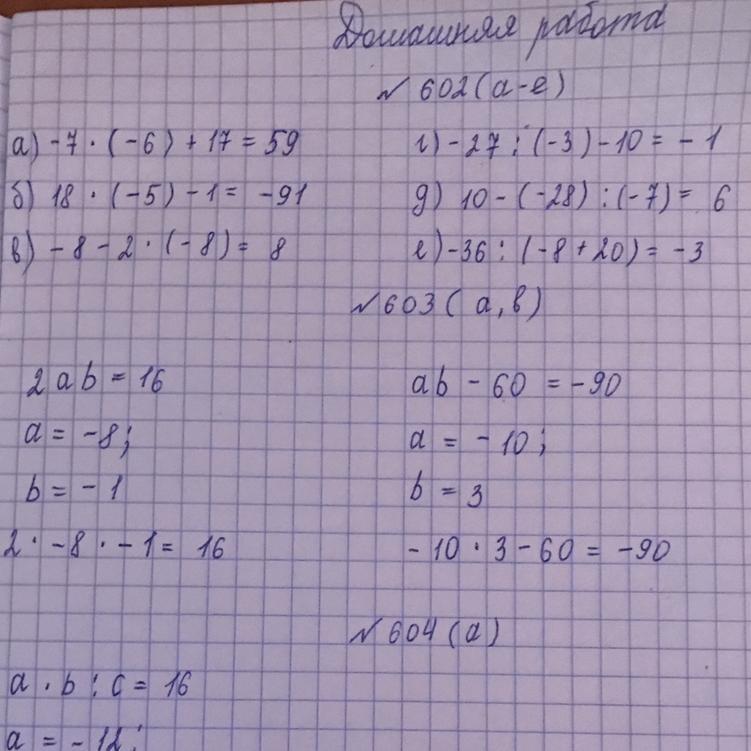 Домашняя работа
№ 602 (а-е)
а) -7 · (-6) + 17 = 59
г) -27 : (-3) - 10 = -1
б) 18 · (-5) - 1 = -91
д) 10 - (-28) : (-7) = 6
в) -8 - 2 · (-8) = 8
е) -36 : (-8 + 20) = -3
№ 603 (а, в)
2ab = 16
ab - 60 = -90
a = -8;
a = -10;
b = -1
b = 3
2 · -8 · -1 = 16
-10 · 3 - 60 = -90
№ 604 (а)
a · b : c = 16
a = -12;